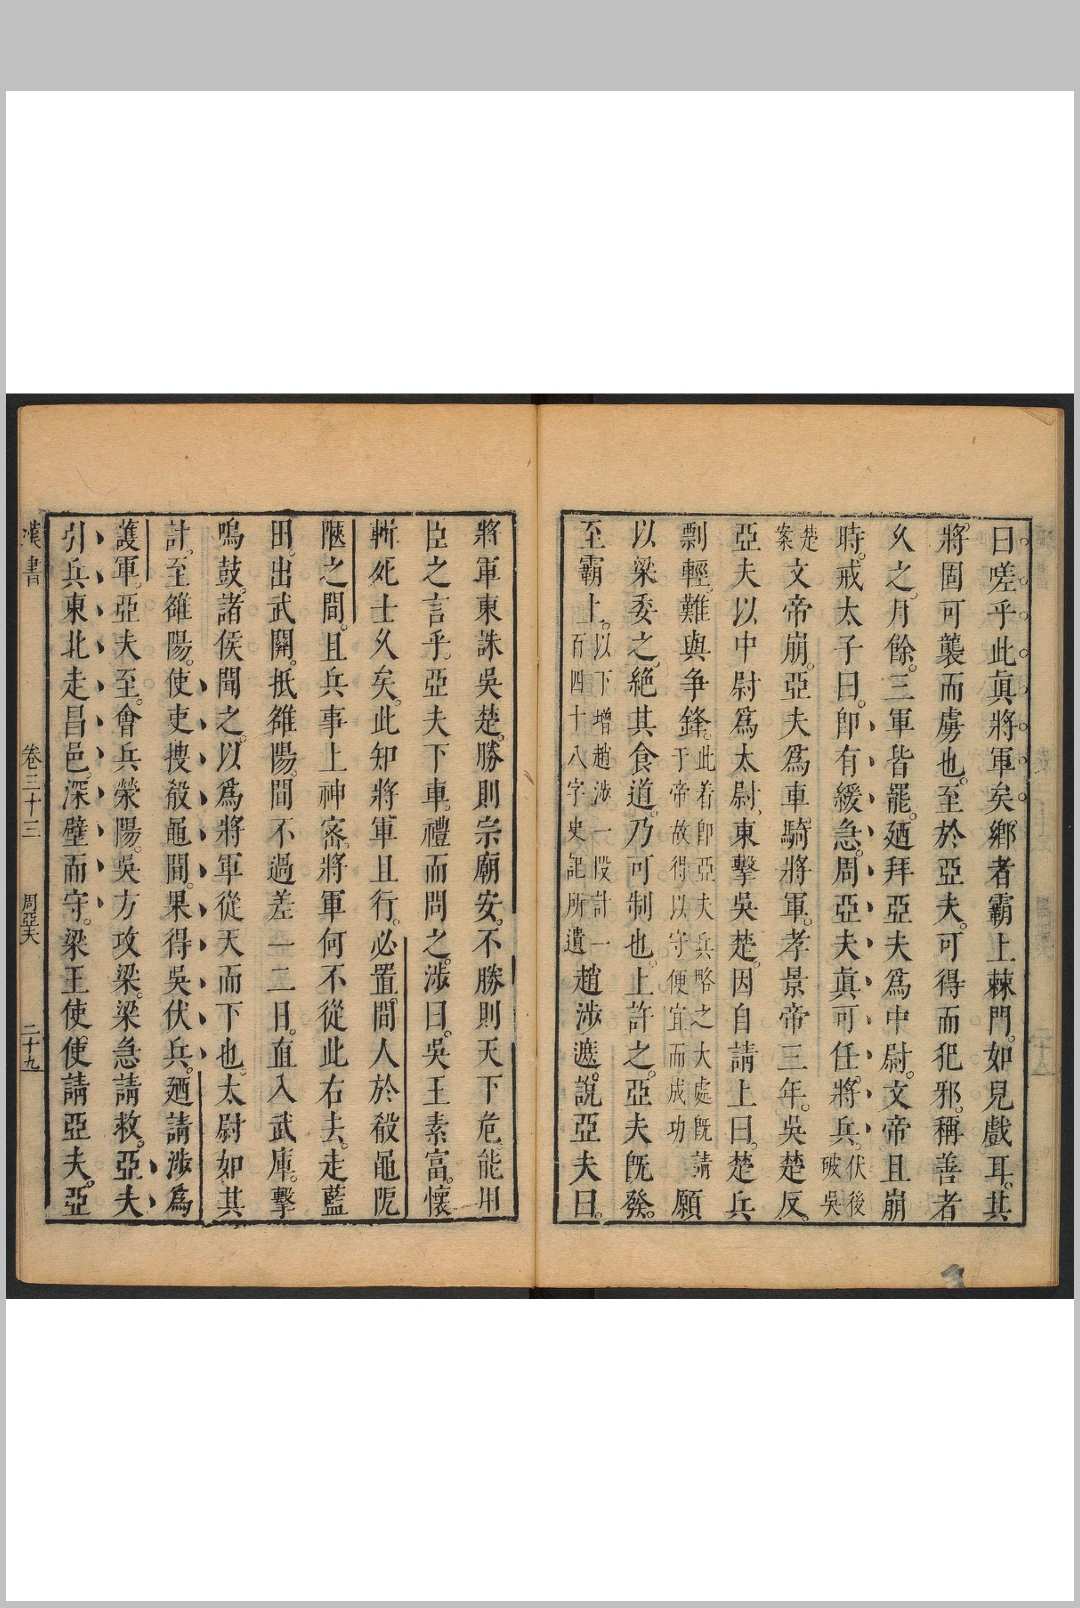 曰嗟乎此眞將軍矣鄉者霸上棘門如見戲耳其
將固可襲而虜也至於亞夫可得而犯邪稱善者
乆之月餘三軍皆罷廼拜亞夫爲中尉文帝且崩
時戒太子曰卽有緩急周亞夫眞可任將兵伏後破吳
楚案文帝崩亞夫爲車騎將軍孝景帝三年吳楚反
亞夫以中尉爲太尉東擊吳楚因自請上曰楚兵
剽輕難與争鋒此着卽亞夫兵略之大處旣請于帝故得以守便宜而成功願
以梁委之絕其食道乃可制也上許之亞夫旣發
至霸上以下增趙涉一段計一百四十八字史記所遺趙涉遮說亞夫曰
將軍東誅吳楚勝則宗廟安不勝則天下危能用
臣之言乎亞夫下車禮而問之涉曰吳王素富懷
輯死士乆矣此知將軍且行必置間人於殽黽阸
陿之間且兵事上神密將軍何不從此右去走藍
田出武關抵雒陽間不過差一二日直入武庫擊
鳴鼓諸侯聞之以爲將軍從天而下也太尉如其
計至雒陽使吏搜殽黽間果得吳伏兵廼請涉爲
護軍亞夫至會兵滎陽吳方攻梁梁急請救亞夫
引兵東北走昌邑深壁而守梁王使使請亞夫亞
漢書 卷三十三 周亞夫 二十九